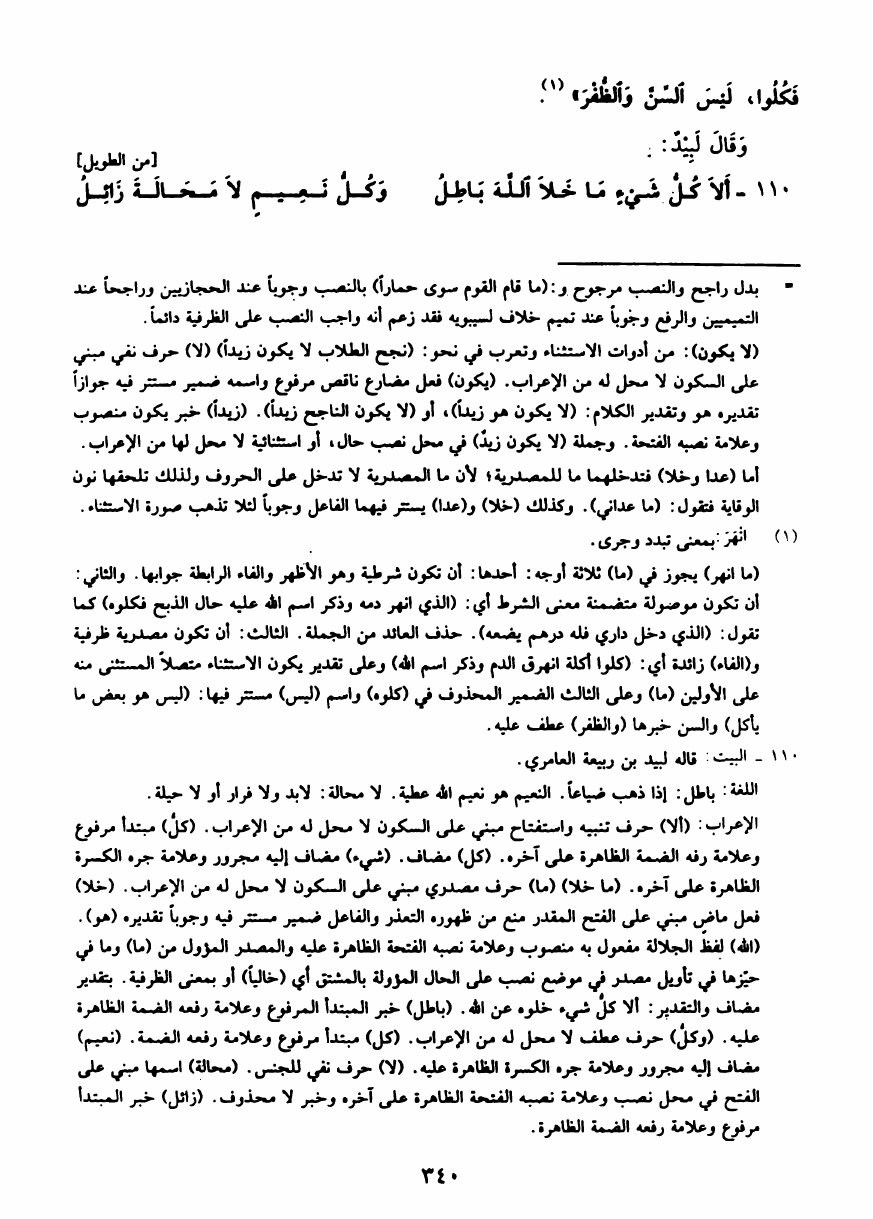 فَكُلُوا، لَيْسَ ٱلسِّنَّ وَٱلظُّفْرَ»(١).
وَقَالَ لَبِيْدٌ:
[من الطويل]
١١٠ - أَلاَ كُلُّ شَيْءٍ مَا خَلاَ ٱللَّهَ بَاطِلُ وَكُلُّ نَعِيمٍ لاَ مَحَالَةَ زَائِلُ
= بدل راجح والنصب مرجوح و: (ما قام القوم سوى حماراً) بالنصب وجوباً عند الحجازيين وراجحاً عند
التميميين والرفع وجوباً عند تميم خلاف لسيبويه فقد زعم أنه واجب النصب على الظرفية دائماً.
(لا يكون): من أدوات الاستثناء وتعرب في نحو: (نجح الطلاب لا يكون زيداً) (لا) حرف نفي مبني
على السكون لا محل له من الإعراب. (يكون) فعل مضارع ناقص مرفوع واسمه ضمير مستتر فيه جوازاً
تقديره هو وتقدير الكلام: (لا يكون هو زيداً)، أو (لا يكون الناجح زيداً). (زيداً) خبر يكون منصوب
وعلامة نصبه الفتحة. وجملة (لا يكون زيدٌ) في محل نصب حال، أو استثنائية لا محل لها من الإعراب.
أما (عدا وخلا) فتدخلهما ما للمصدرية؛ لأن ما المصدرية لا تدخل على الحروف ولذلك تلحقها نون
الوقاية فتقول: (ما عداني). وكذلك (خلا) و(عدا) يستتر فيهما الفاعل وجوباً لئلا تذهب صورة الاستثناء.
(١) انْهَرَ: بمعنى تبدد وجرى.
(ما انهر) يجوز في (ما) ثلاثة أوجه: أحدها: أن تكون شرطية وهو الأظهر والفاء الرابطة جوابها. والثاني:
أن تكون موصولة متضمنة معنى الشرط أي: (الذي انهر دمه وذكر اسم الله عليه حال الذبح فكلوه) كما
تقول: (الذي دخل داري فله درهم يضعه). حذف العائد من الجملة. الثالث: أن تكون مصدرية ظرفية
و(الفاء) زائدة أي: (كلوا أكلة انهرق الدم وذكر اسم الله) وعلى تقدير يكون الاستثناء متصلاً المستثنى منه
على الأولين (ما) وعلى الثالث الضمير المحذوف في (كلوه) واسم (ليس) مستتر فيها: (ليس هو بعض ما
يأكل) والسن خبرها (والظفر) عطف عليه.
١١٠ - البيت: قاله لبيد بن ربيعة العامري.
اللغة: باطل: إذا ذهب ضياعاً. النعيم هو نعيم الله عطية. لا محالة: لابد ولا فرار أو لا حيلة.
الإعراب: (ألا) حرف تنبيه واستفتاح مبني على السكون لا محل له من الإعراب. (كلُّ) مبتدأ مرفوع
وعلامة رفه الضمة الظاهرة على آخره. (كل) مضاف. (شيء) مضاف إليه مجرور وعلامة جره الكسرة
الظاهرة على آخره. (ما خلا) (ما) حرف مصدري مبني على السكون لا محل له من الإعراب. (خلا)
فعل ماضٍ مبني على الفتح المقدر منع من ظهوره التعذر والفاعل ضمير مستتر فيه وجوباً تقديره (هو).
(الله) لفظُ الجلالة مفعول به منصوب وعلامة نصبه الفتحة الظاهرة عليه والمصدر المؤول من (ما) وما في
حيّزها في تأويل مصدر في موضع نصب على الحال المؤولة بالمشتق أي (خالياً) أو بمعنى الظرفية. بتقدير
مضاف والتقدير: ألا كلُّ شيء خلوه عن الله. (باطل) خبر المبتدأ المرفوع وعلامة رفعه الضمة الظاهرة
عليه. (وكلُّ) حرف عطف لا محل له من الإعراب. (كل) مبتدأ مرفوع وعلامة رفعه الضمة. (نعيم)
مضاف إليه مجرور وعلامة جره الكسرة الظاهرة عليه. (لا) حرف نفي للجنس. (محالة) اسمها مبني على
الفتح في محل نصب وعلامة نصبه الفتحة الظاهرة على آخره وخبر لا محذوف. (زائل) خبر المبتدأ
مرفوع وعلامة رفعه الضمة الظاهرة.
٣٤٠